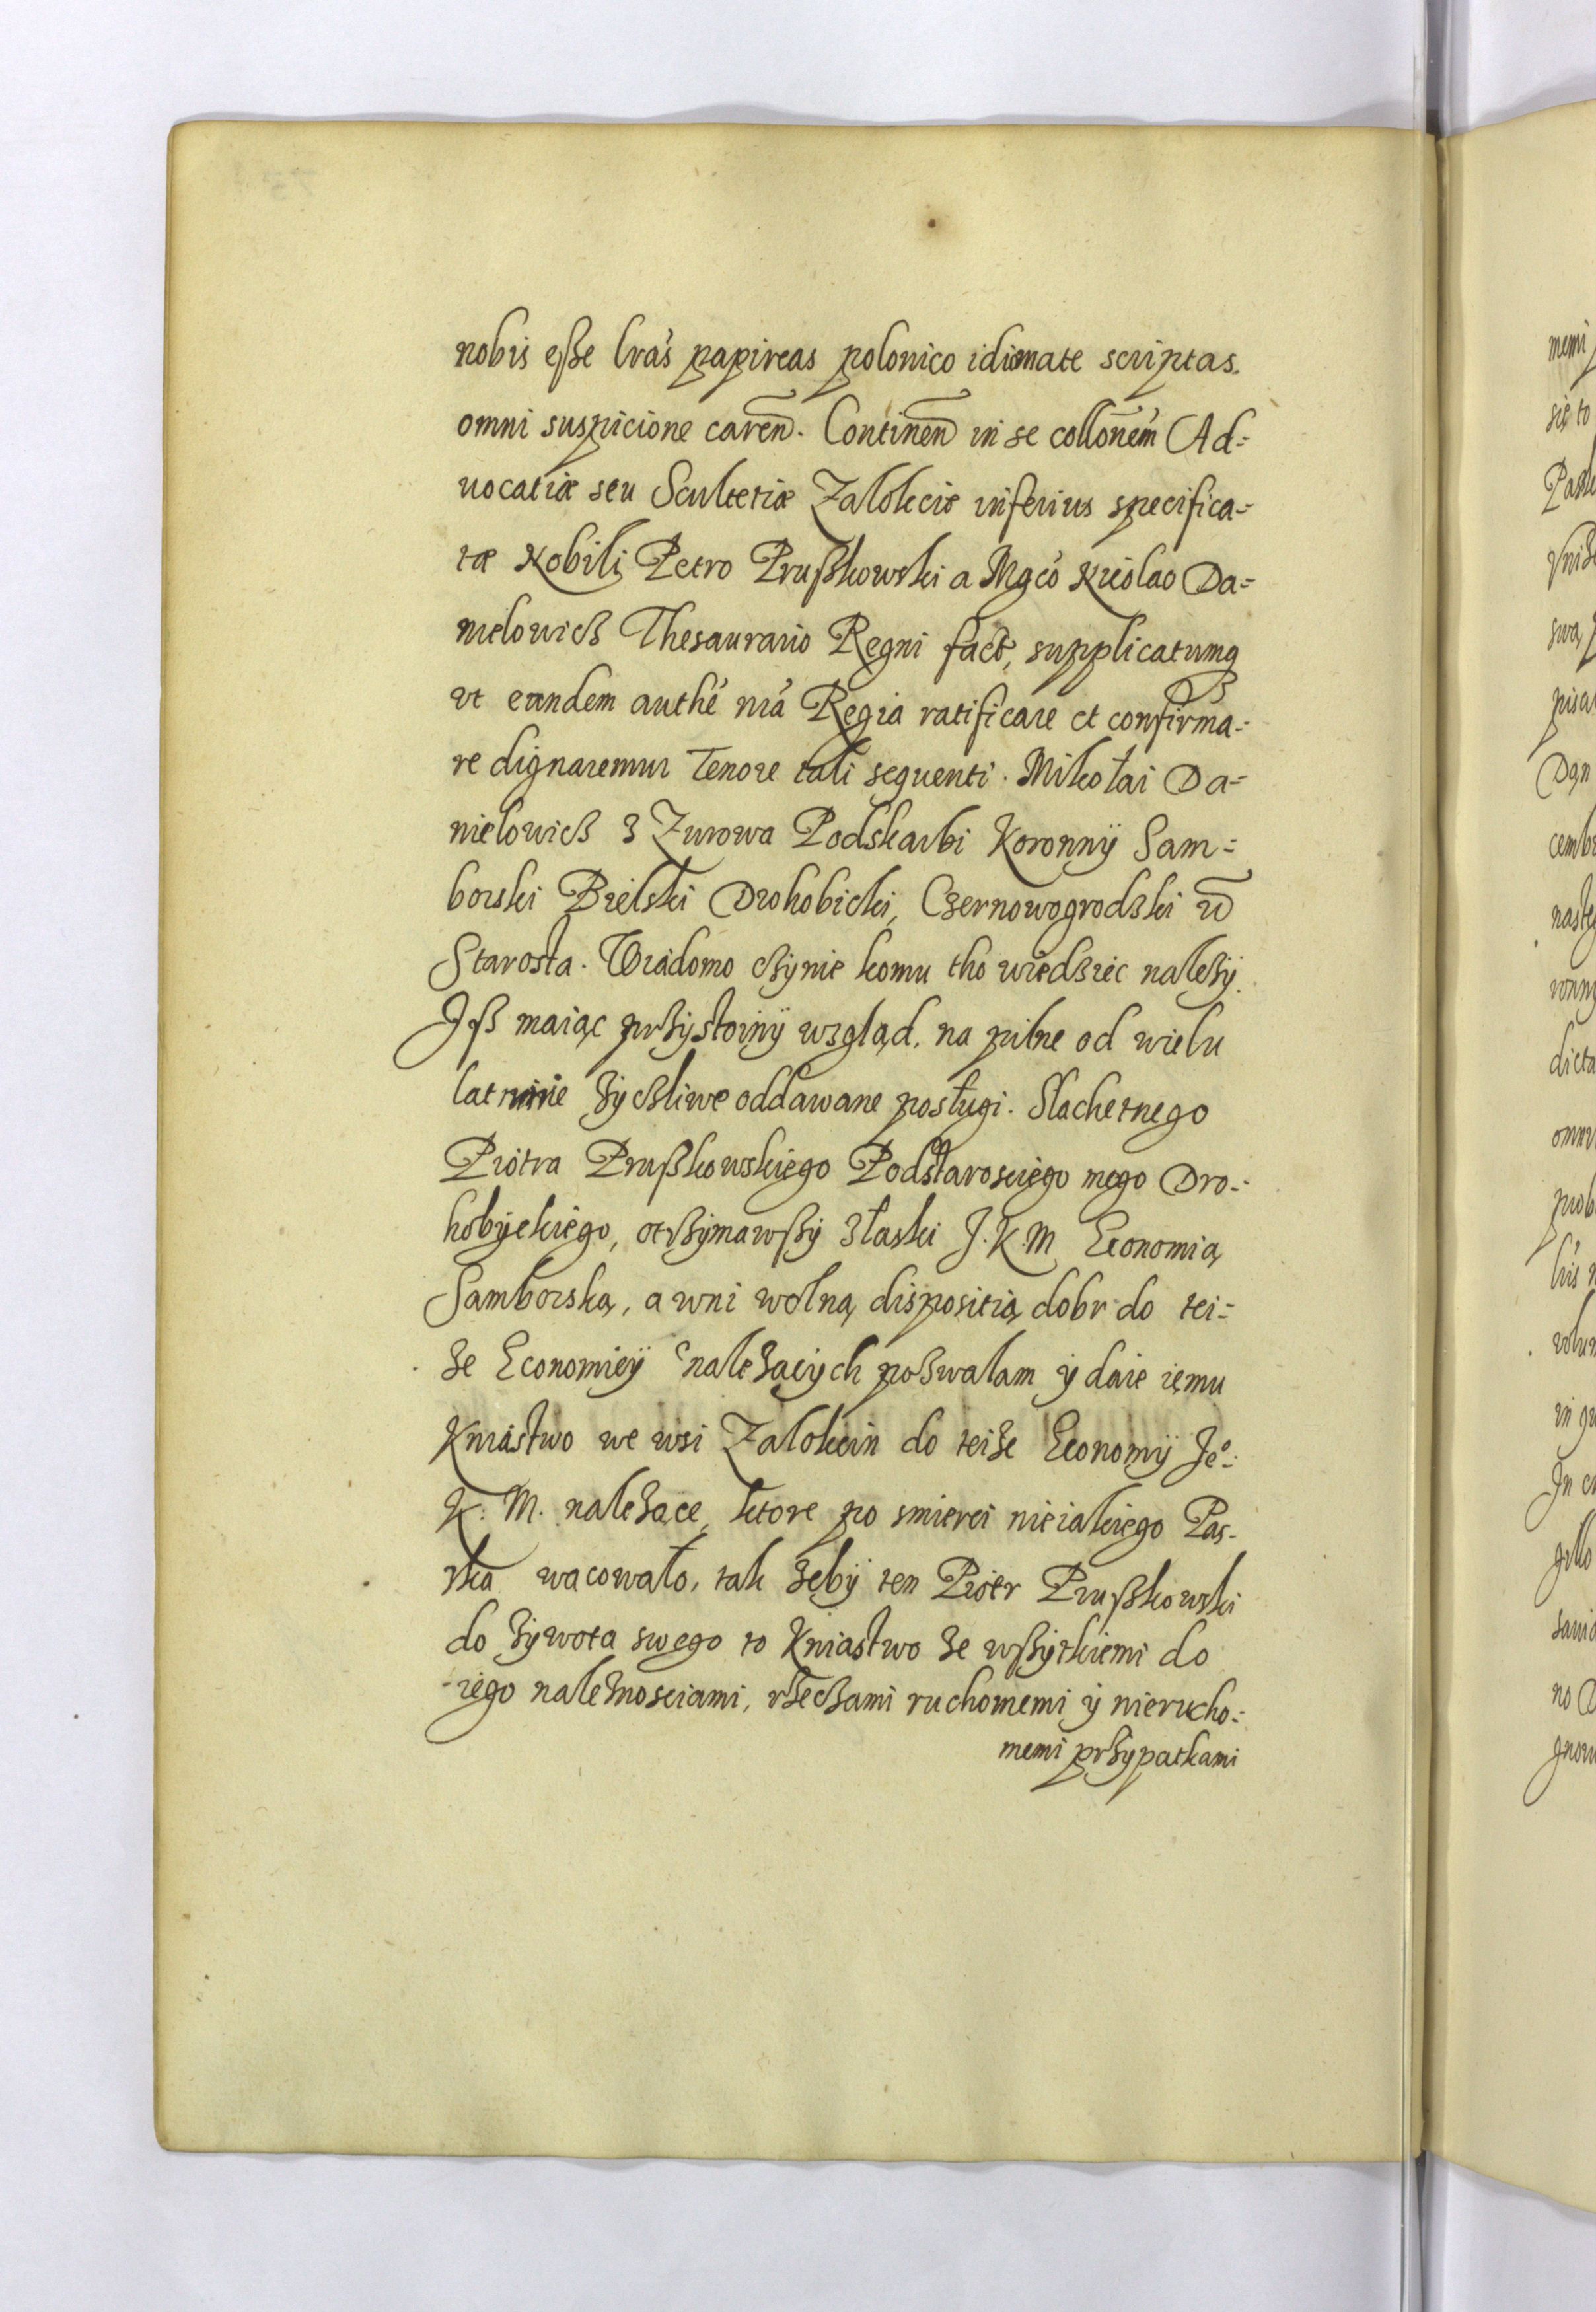 nobis eße lrãs papireas polonico idiomate scriptas.
omni suspicione careñ. Continen̄ in se collonẽm Ad=
uocatiæ seu Scultetiæ Zalokcie inferius specifica=
tæ Nobili Petro Prußkowski a Mgcó Nicolao Da=
nielowicß Thesaurario Regni fact, supplicatumq
vt eandem authé nrá Regia ratificare et confirma=
re dignaremur Tenore tali sequenti. Mikołai Da=
nielowicß z Zurowa Podskarbi Koronnÿ Sam=
borski Bielski Drohobicki, Czernowogrodzki 
Starosta. Wiadomo cżÿnie komu tho wiedziec należÿ.
Iß maiąc przÿstoinÿ wzgląd, na pilne od wielu
lat mnie żÿcżliwe oddawane posługi. Slachetnego
Piotra Prußkowskiego Podstarosciego mego Dro=
hobÿckiego, otrzÿmawßÿ złaski J.K.M Economią
Samborską, a wni wolną dispositią dobr do tei=
że Economieÿ należącÿch pozwalam ÿ daie iemu
Kniastwo we wsi Zalokcin do teiże Economÿ Je⁰:
K: M. należące, ktore po smierci nieiakiego Pas=
ka wacowało, tak żebÿ ten Piotr Prußkowski
do żÿwota swego to Kniastwo ze wßÿtkiemi do
iego należnosciami, rzecżami ruchomemi ÿ nierucho=
memi przÿpatkami